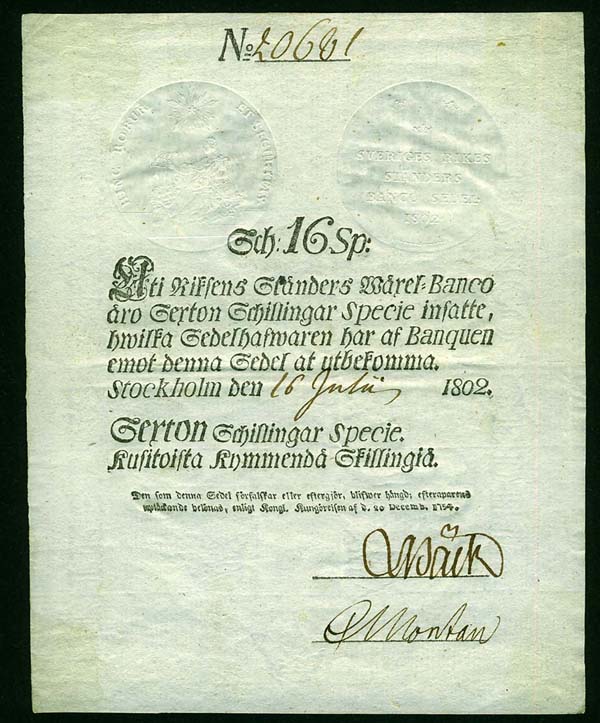 No 20681
HINC ROBUR ET SECURITAS
SVERIGES RIKES
STÄNDERS
BANCO SEDEL
1802
Sch: 16 Sp:
Uti Riksens Ständers Wäxel-Banco
äro Sexton Schillingar Specie insatte,
hwilka Sedelhafwaren har af Banquen
emot denna Sedel at utbekomma.
Stockholm den 16 Julii 1802.
Sexton Schillingar Specie.
Kusitoista Kymmendä Skillingiä.
Den som denna Sedel förfalskar eller eftergjör, blifwer hängd; efteraparens
uptäckande belönas, enligt Kongl. Kungörelsen af d. 20 Decemb. 1754.
Bäck
Montan